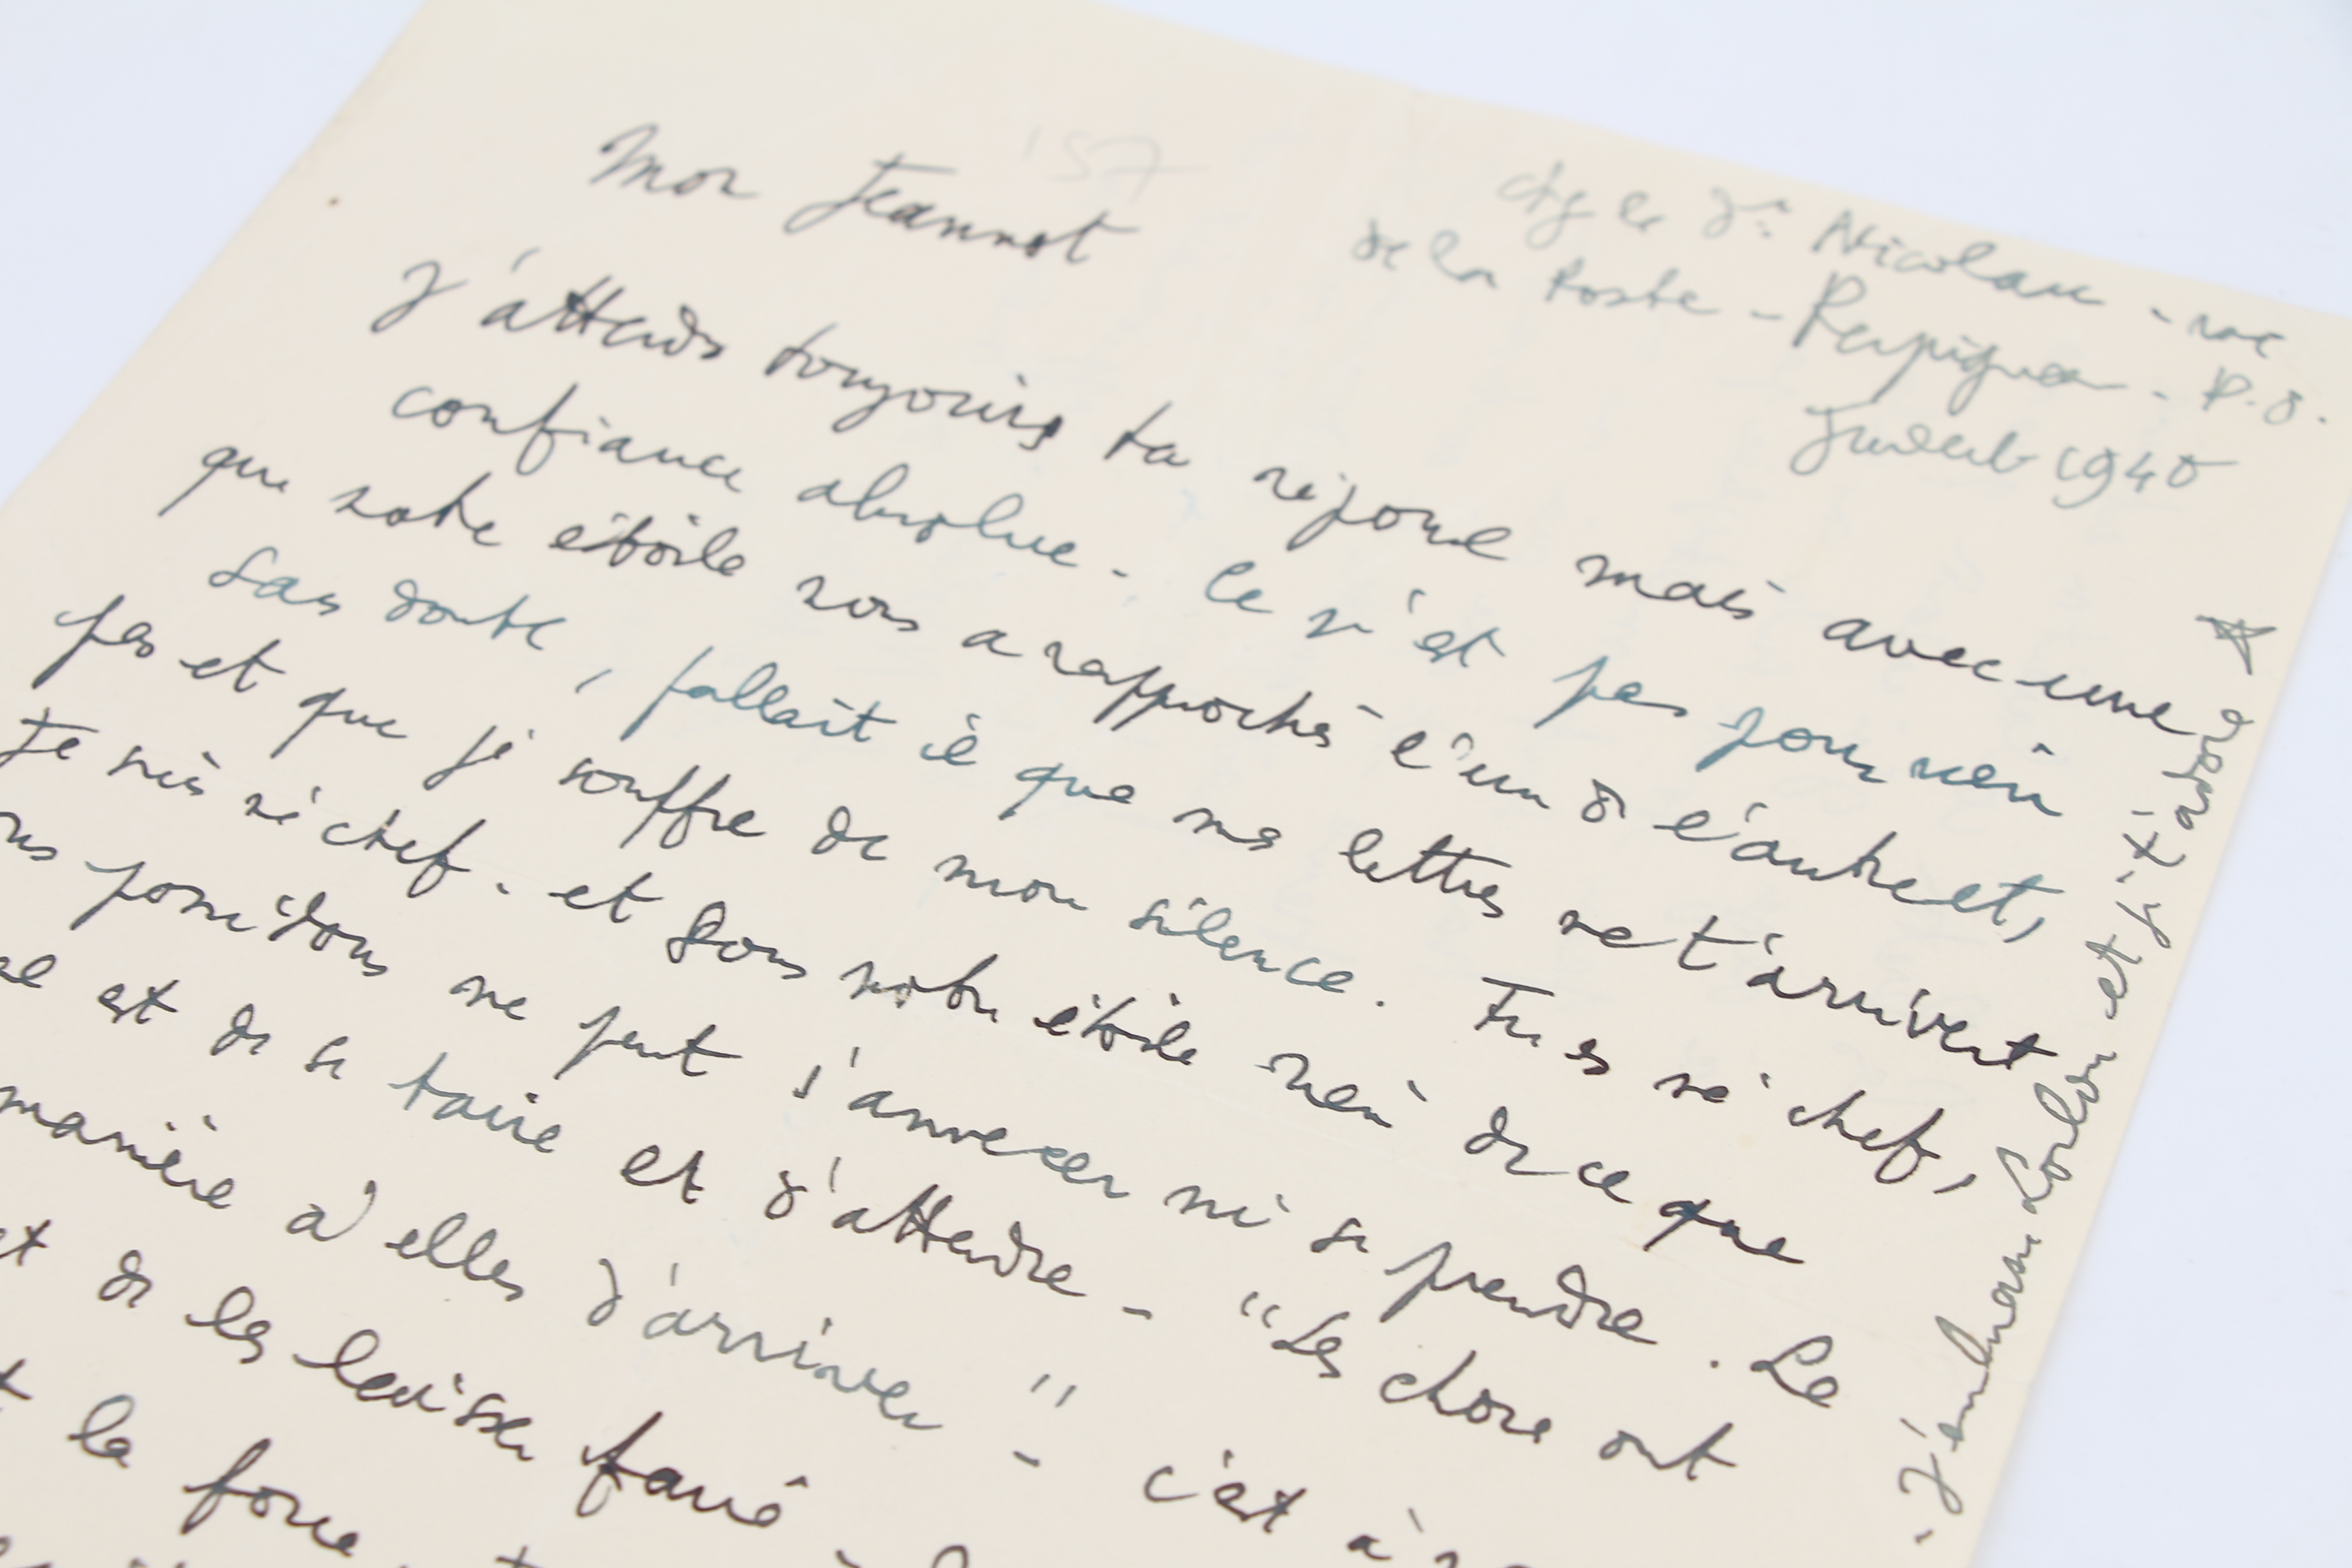 157
chez le Dr. Nicolau - rue
de la Poste - Perpignan - P.O.
Juillet 1940
Mon Jeannot
J'attends toujours ta réponse mais avec une
confiance absolue. Ce n'est pas pour rien
que notre étoile nous a rapprochés l'un de l'autre et,
sans doute, fallait il que mes lettres ne t'arrivent
pas et que je souffre de mon silence. Tu es né chef,
Je suis né chef. et sous notre étoile rien de ce que
nous possédons ne peut s'annexer ni se prendre. Le
est de se taire et d'attendre - "Les choses ont
manière à elles d'arriver" - c'est à
et de les laisser faire
la force
J'embrasse et je t'adore